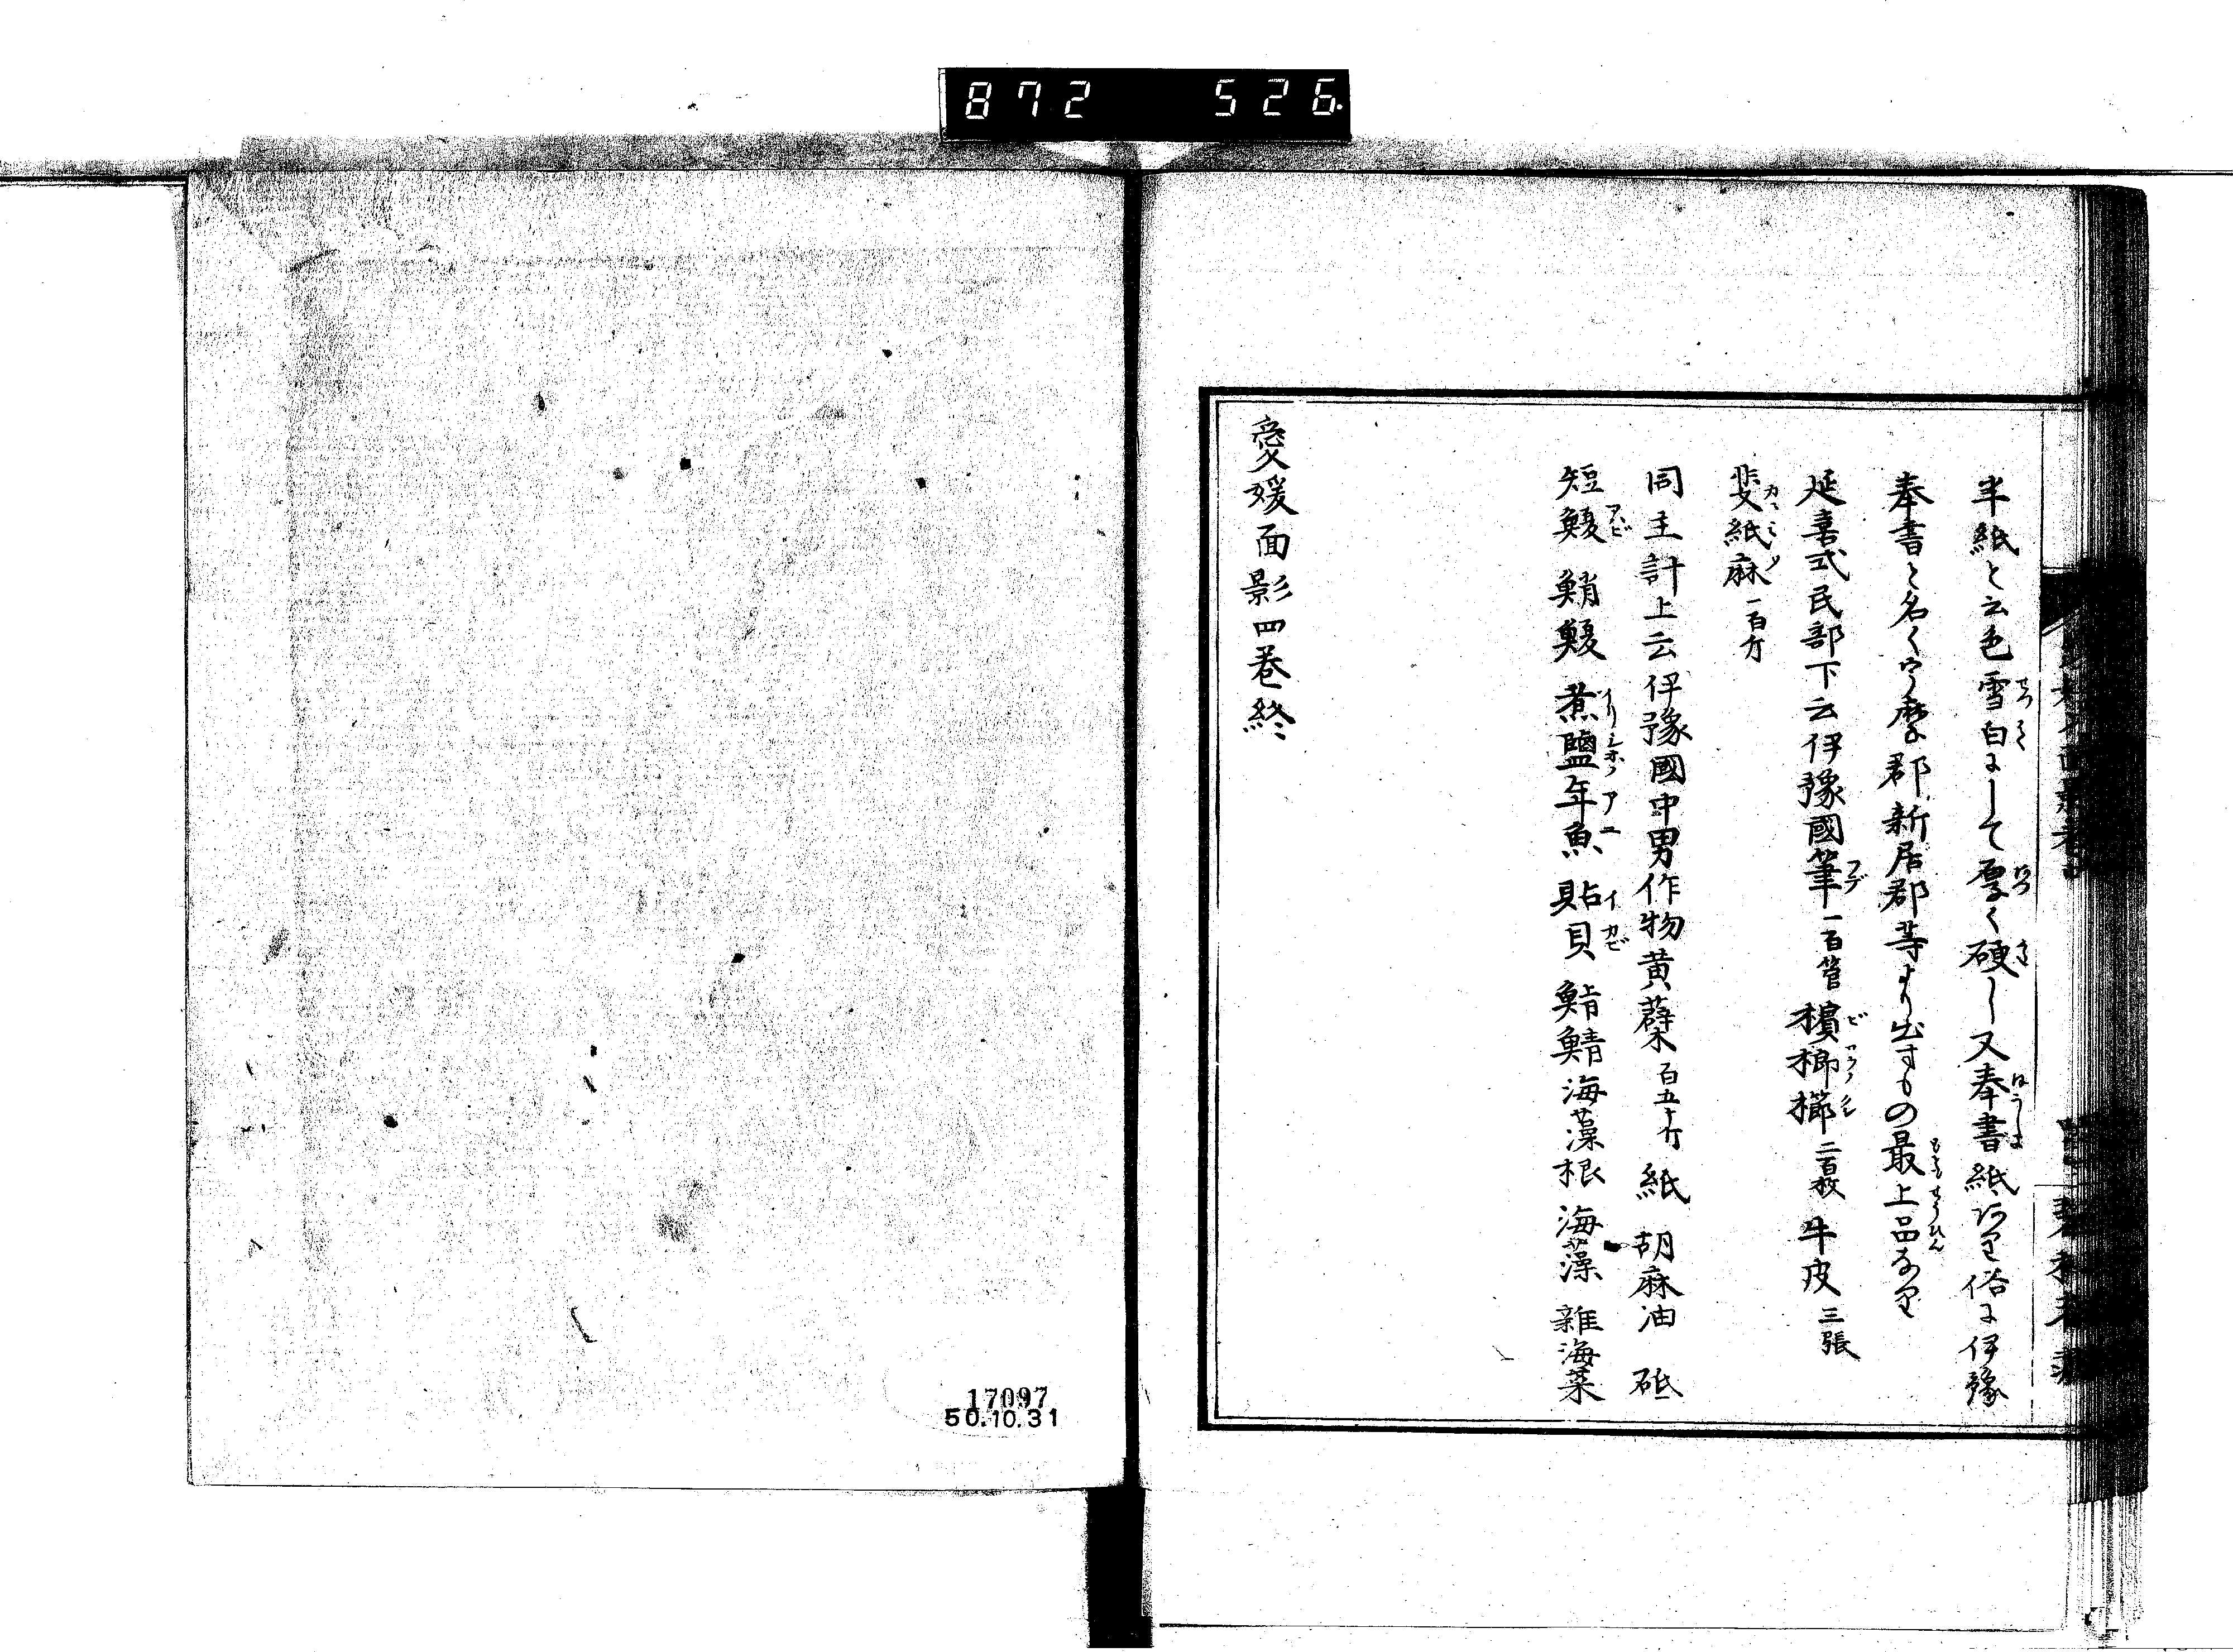 872 526
半紙と云色雪白にして厚く硬し又奉書紙あり俗に伊豫
奉書と名く宇摩郡新居郡等より出すもの最上品なり
延喜式民部下云伊豫國筆一百管檳榔櫛二百枚牛皮三張
斐紙麻一百斤
同主計上云伊豫國中男作物黄蘗百五十斤紙胡麻油砥
短鰒鮹鰒煮鹽年魚貽貝鮨鯖海藻根海藻雜海菜
愛媛面影四巻終
17097
50.10.31